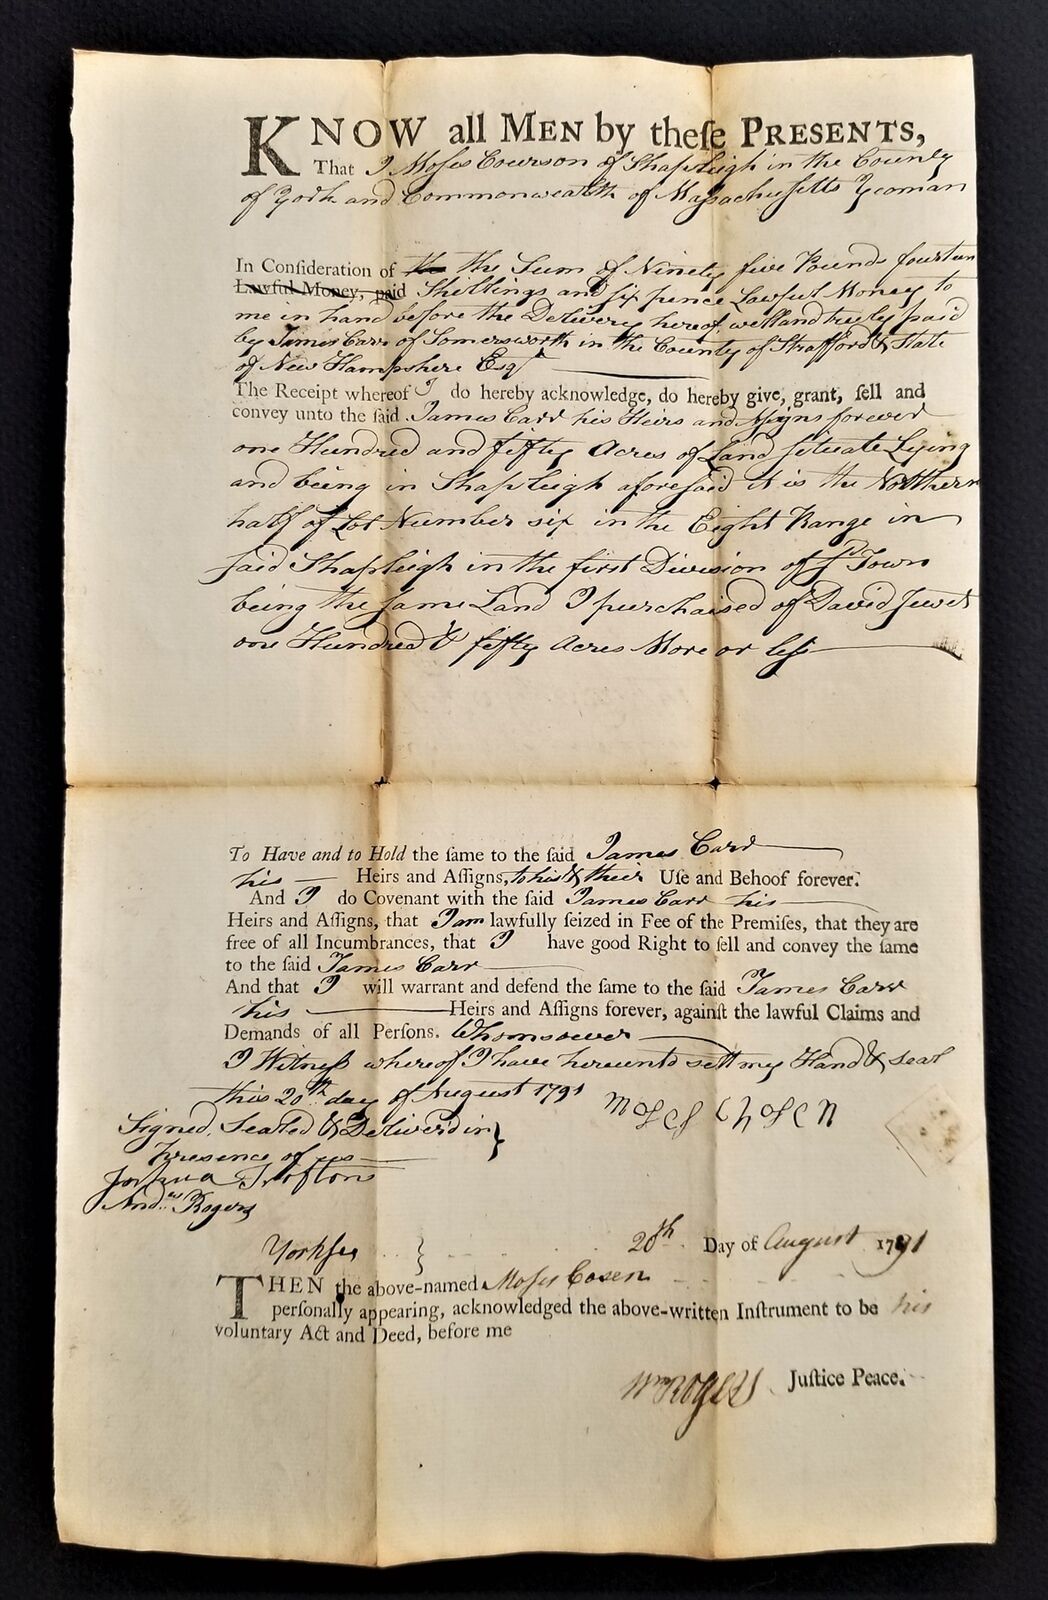 KNOW all MEN by theſe PRESENTS,
That I Moses Courson of Shapleigh in the County
of York and Commonwealth of Massachusetts Yeoman
In Conſideration of the the Sum of Ninety five Pounds fourteen
Lawful Money, paid Shillings and six pence Lawful Money to
me in hand before the Delivery hereof well and truly paid
by James Carr of Somersworth in the County of Strafford & State
of New Hampshere Esqr
The Receipt whereof I do hereby acknowledge, do hereby give, grant, ſell and
convey unto the ſaid James Carr his Heirs and Assigns forever
one Hundred and fifty Acres of Land situate Lying
and being in Shapleigh aforesaid it is the Northern
half of Lot Number six in the Eight Range in
said Shapleigh in the first Division of sd Town
being the same Land I purchaised of David Jewet
one Hundred & fifty Acres More or less
To Have and to Hold the ſame to the ſaid James Carr
his Heirs and Aſſigns, to his & their Uſe and Behoof forever.
And I do Covenant with the ſaid James Carr his
Heirs and Aſſigns, that I am lawfully ſeized in Fee of the Premiſes, that they are
free of all Incumbrances, that I have good Right to ſell and convey the ſame
to the ſaid James Carr
And that I will warrant and defend the ſame to the ſaid James Carr
his Heirs and Aſſigns forever, againſt the lawful Claims and
Demands of all Perſons. Whomsoever
I Witness whereof I have hereunto sett my Hand & seal
this 20th day of August 1791
moses Chosen
Signed, Sealed & Deliverd in
Presence of us
Joshua Trofton
Andws Rogers
Yorkss 20th Day of August 1791
THEN the above-named Moses Cosen
perſonally appearing, acknowledged the above-written Inſtrument to be his
voluntary Act and Deed, before me
Wm Rogers Juſtice Peace.